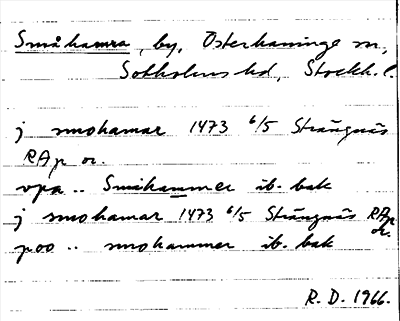 Småhamra, by, Österhaninge sn,
Sotholms hd, Stockh. l.
j smohamar 1473 6/5 Strängnäs
RAp or.
vpa .. Smihammer ib. bak
j smohamar 1473 6/5 Strängnäs RAp or.
poo .. smohammer ib. bak
R. D. 1966.